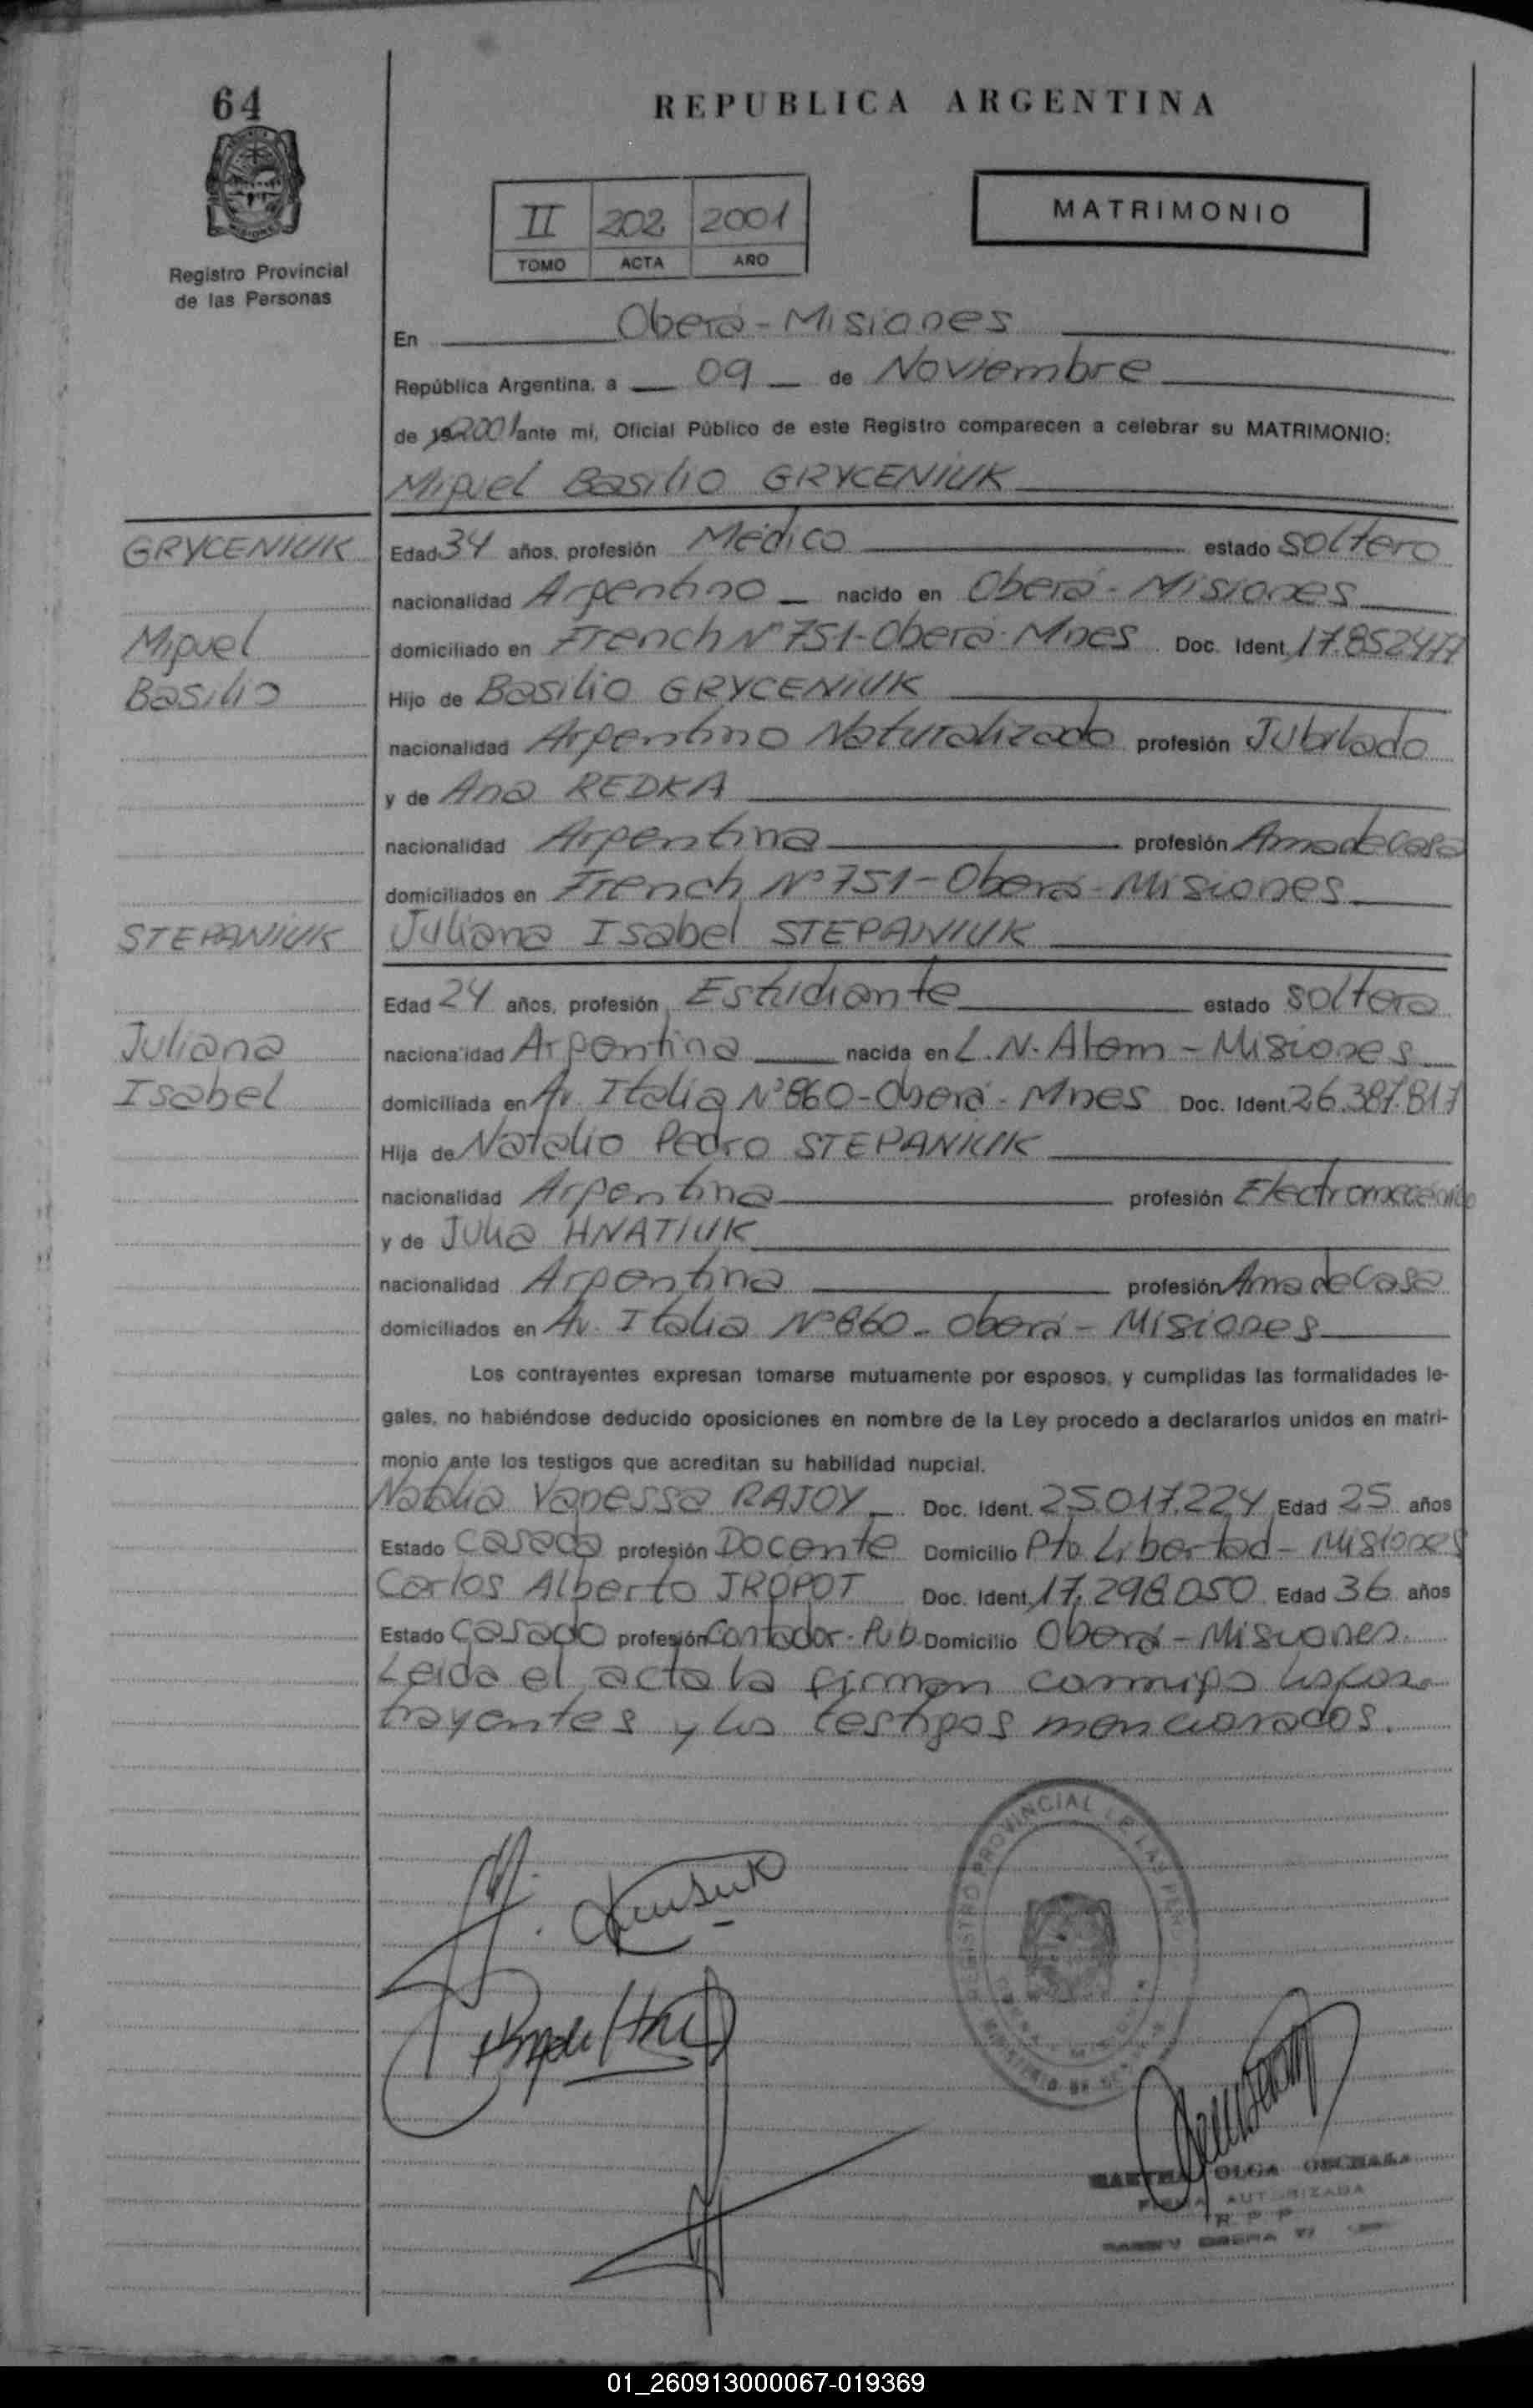 64
REPUBLICA ARGENTINA
Registro Provincial
de las Personas
II 202 2001
TOMO ACTA AÑO
MATRIMONIO
En Oberá - Misiones
República Argentina, a 09 de Noviembre
de 2001 ante mí, Oficial Público de este Registro comparecen a celebrar su MATRIMONIO:
Miguel Basilio GRYCENIUK
GRYCENIUK Edad 34 años, profesión Médico estado soltero
nacionalidad Argentino nacido en Oberá - Misiones
Miguel domiciliado en French Nº 751 - Oberá - Mnes Doc. Ident. 17.852477
Basilio Hijo de Basilio GRYCENIUK
nacionalidad Argentino Naturalizado profesión Jubilado
y de Ana REDKA
nacionalidad Argentina profesión Ama de Casa
domiciliados en French Nº 751 - Oberá - Misiones
STEPANIUK Juliana Isabel STEPANIUK
Edad 24 años, profesión Estudiante estado soltera
Juliana nacionalidad Argentina nacida en L.N. Alem - Misiones
Isabel domiciliada en Av. Italia Nº 860 - Oberá - Mnes Doc. Ident. 26.387.817
Hija de Natalio Pedro STEPANIUK
nacionalidad Argentina profesión Electromecánico
y de Julia HNATIUK
nacionalidad Argentina profesión Ama de Casa
domiciliados en Av. Italia Nº 860 - Oberá - Misiones
Los contrayentes expresan tomarse mutuamente por esposos, y cumplidas las formalidades le-
gales, no habiéndose deducido oposiciones en nombre de la Ley procedo a declararlos unidos en matri-
monio ante los testigos que acreditan su habilidad nupcial.
Natalia Vanessa RAJOY Doc. Ident. 25.017.224 Edad 25 años
Estado Casada profesión Docente Domicilio Pto. Libertad - Misiones
Carlos Alberto TROPOT Doc. Ident. 17.298.050 Edad 36 años
Estado Casado profesión Contador. Pub. Domicilio Oberá - Misiones.
Leida el acta la firman conmigo los con
trayentes y los testigos mencionados.
REGISTRO PROVINCIAL DE LAS PERS
MARTHA OLGA
FIRMA AUTORIZADA
R. P. P.
01_260913000067-019369